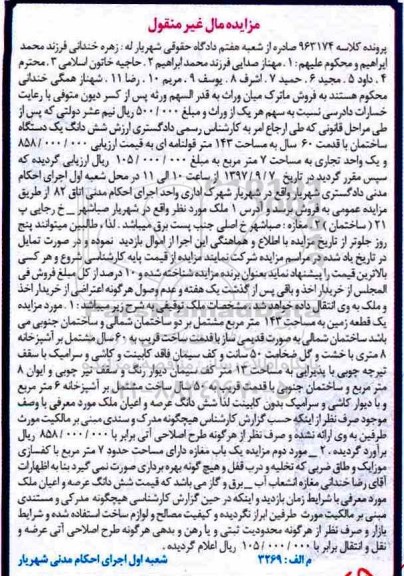 مزایده مال غیر منقول
پرونده کلاسه ۹۶۳۱۷۴ صادره از شعبه هفتم دادگاه حقوقی شهریار له : زهره خندانی فرزند محمد
ابراهیم و محکوم علیهم : ۱. مهناز صدایی فرزند محمد ابراهیم ۲. حاجیه خاتون اسلامی ۳. محترم
۴. داود ۵. مجید ۶. حمید ۷. اشرف ۸. یوسف ۹. مریم ۱۰. رضا ۱۱. شهناز همگی خندانی
محکوم هستند به فروش ماترک میان وراث به قدر السهم ورثه پس از کسر دیون متوفی با رعایت
خسارات دادرسی نسبت به سهم هر یک از وراث و مبلغ ۵۰۰/۰۰۰ ریال نیم عشر دولتی که پس از
طی مراحل قانونی که طی ارجاع امر به کارشناس رسمی دادگستری ارزش شش دانگ یک دستگاه
ساختمان با قدمت ۶۰ سال به مساحت ۱۴۳ متر قولنامه ای به قیمت ارزیابی ۸۵۸/۰۰۰/۰۰۰
و یک واحد تجاری به مساحت ۷ متر مربع به مبلغ ۱۰۵/۰۰۰/۰۰۰ ریال ارزیابی گردیده که
سپس مقرر گردید در تاریخ ۱۳۹۷/۹/۷ از ساعت ۱۰ الی ۱۱ در محل شعبه اول اجرای احکام
مدنی دادگستری شهریار واقع در شهریار شهرک اداری واحد اجرای احکام مدنی اتاق ۸۲ از طریق
مزایده عمومی به فروش برسد و آدرس ۱ ملک مورد نظر واقع در شهریار صباشهر _ خ رجایی پ
۲۱ (ساختمان) ۲. مغازه : صباشهر خ اصلی جنب پست برق میباشد . لذا ، طالبین میتوانند پنج
روز جلوتر از تاریخ مزایده با اطلاع و هماهنگی این اجرا از اموال بازدید نموده و در صورت تمایل
در تاریخ یاد شده در مراسم مزایده شرکت نمایند مزایده از قیمت پایه کارشناسی شروع و هر کسی
بالاترین قیمت را پیشنهاد نماید بعنوان برنده مزایده شناخته شده و ۱۰ درصد از کل مبلغ فروش فی
المجلس از خریدار اخذ و باقی پس از گذشت یک هفته و عدم وصول هرگونه اعتراضی از خریدار اخذ
و ملک به وی انتقال داده خواهد شد . مشخصات ملک توقیفی به شرح زیر میباشد : ۱. مورد مزایده
یک قطعه زمین به مساحت ۱۴۳ متر مربع مشتمل بر دو ساختمان شمالی و ساختمان جنوبی می
باشد ساختمان شمالی به صورت قدیمی ساز با قدمت ساخت قریب به ۶۰ سال مشتمل بر آشپزخانه
۸ متری با خشت و گل ضخامت ۵۰ سانت و کف سیمان فاقد کابینت و کاشی و سرامیک با سقف
تیرچه چوبی با پذیرایی به مساحت ۱۳ متر کف سیمان دیوار رنگ و سقف تیر چوبی و ایوان ۸
متر مربع و ساختمان جنوبی با قدمت قریب به سال ساخت مشتمل بر آشپزخانه ۶ متر مربع
و با دیوار کاشی و سرامیک بدون کابینت لذا شش دانگ عرصه و اعیان ملک مورد معرفی با وصف
موجود صرف نظر از اینکه حسب گزارش کارشناس هیچگونه مدرک و سندی مبنی بر مالکیت مورث
طرفین به وی ارائه نشده و صرف نظر از هر گونه طرح اصلاحی آتی برابر با ۸۵۸/۰۰۰/۰۰۰ ریال
برآورد گردیده . ۲ _ مورد دوم مزایده یک باب مغازه دارای مساحت حدود ۷ متر مربع با کفسازی
موزاییک و طاق ضربی که تخلیه و درب قفل و هیچ گونه بهره برداری صورت نمی گیرد بنا به اظهارات
آقای رضا خندانی مغازه انشعاب آب _ برق و گاز می باشد که قیمت شش دانگ عرصه و اعیان ملک
مورد معرفی با شرایط زمان بازدید و اینکه در حین گزارش کارشناسی هیچگونه مدرکی و مستندی
مبنی بر مالکیت مورث طرفین ابراز نگردیده و کیفیت مصالح و لوازم ساخت استفاده شده و شرایط
بازار و صرف نظر از هر گونه محدودیت ثبتی و یا رهن و بدهی هرگونه طرح اصلاحی آتی عرصه و
نقل و انتقال برابر با ۱۰۵/۰۰۰/۰۰۰ ریال اعلام گردیده .
م الف : ۳۳۶۹ شعبه اول اجرای احکام مدنی شهریار